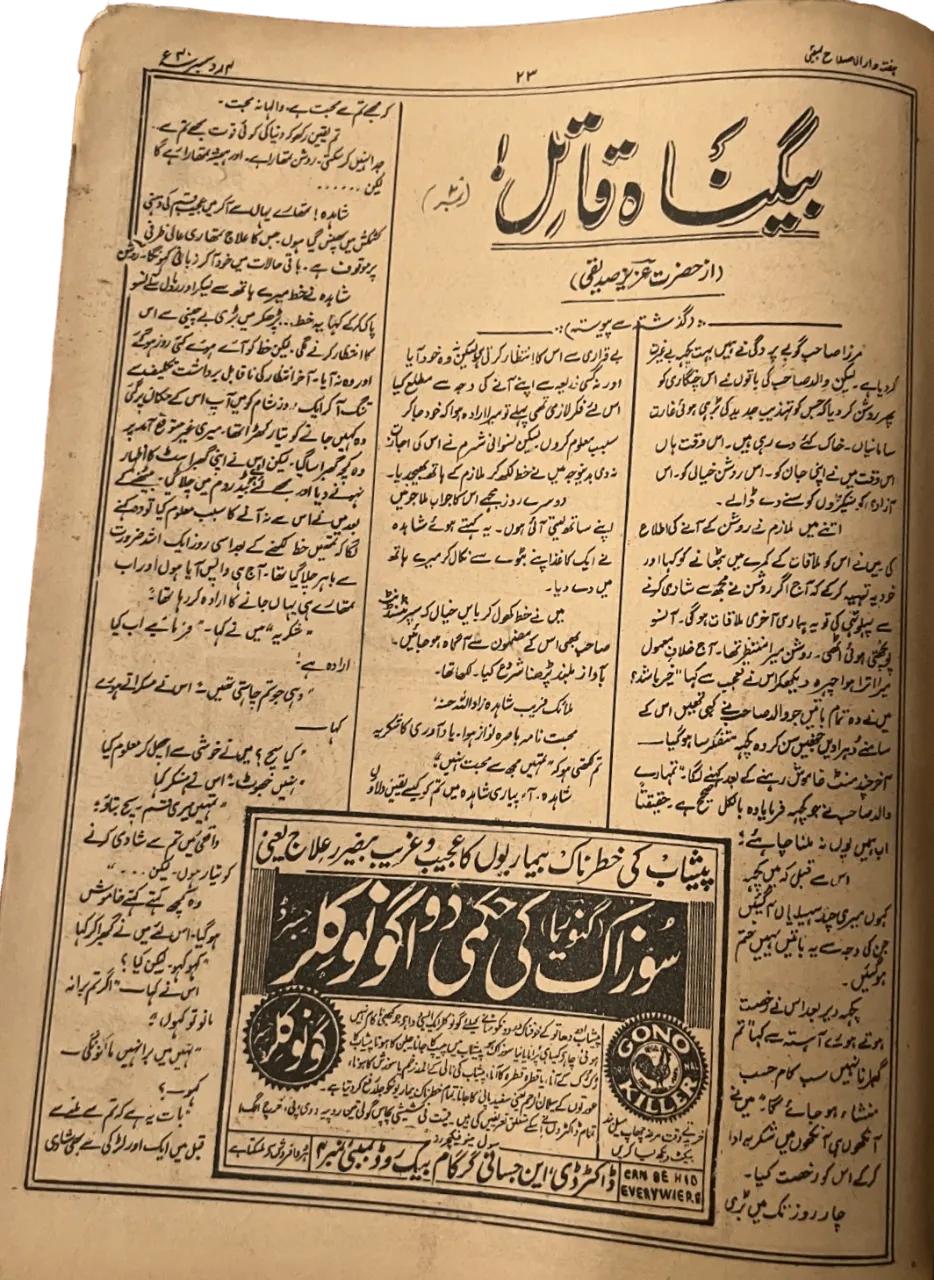 ہفتہ وار الاصلاح بمبئی
۲۳
بیگناہ قاتل!
(نمبر ۲)
(از حضرت عزیز صدیقی)
(گذشتہ سے پیوستہ)
مرزا صاحب گو بے پردگی نے ہمیں بہت کچھ بے غیرت
کر دیا ہے۔ لیکن والد صاحب کی باتوں نے اس چنگاری کو
پھر روشن کر دیا کہ جس کو تہذیب جدید کی بڑھی ہوئی غارت
سامانیاں۔ خاک کئے دے رہی ہیں۔ اس وقت ہاں
اس وقت میں نے اپنی جان کو۔ اس روشن خیالی کو۔ اس
آزادی کو سینکڑوں کوسنے دے ڈالے۔
اتنے میں ملازم نے روشن کے آنے کی اطلاع
کی میں نے اس کو ملاقات کے کمرے میں بٹھانے کو کہا اور
خود یہ تہیہ کر کے کہ آج اگر روشن نے مجھ سے شادی کرنے
سے پہلوتہی کی تو یہ ہماری آخری ملاقات ہوگی۔ آنسو
پونچھتی ہوئی اٹھی۔ روشن میرا منتظر تھا۔ آج خلاف معمول
میرا اترا ہوا چہرہ دیکھکر اس نے تعجب سے کہا "خیر باشد؟
میں نے وہ تمام باتیں جو والد صاحب نے کہی تھیں اس کے
سامنے دہرا دیں جنھیں سن کر وہ کچھ متفکر سا ہو گیا۔۔
آخر چند منٹ خاموش رہنے کے بعد کہنے لگا "تمہارے
والد صاحب نے جو کچھ فرمایا وہ بالکل صحیح ہے۔ حقیقتاً
اب ہمیں یوں نہ ملنا چاہئے"
اس سے قبل کہ میں کچھ
کہوں میری چند سہیلیاں آگئیں
جن کی وجہ سے یہ باتیں یہیں ختم
ہوگئیں۔
کچھ دیر بعد اس نے رخصت
ہوتے ہوئے آہستہ سے کہا "تم
گھبرانا نہیں سب کام حسب
منشاء ہو جائے گا" میں نے
آنکھوں ہی آنکھوں میں شکریہ ادا
کر کے اس کو رخصت کیا۔
چار روز تک میں بڑی
بے قراری سے اس کا انتظار کرتی رہی لیکن وہ خود آیا
اور نہ کسی ذریعہ سے اپنے آنے کی وجہ سے مطلع کیا
اس لئے فکر لازمی تھی پہلے تو میرا ارادہ ہوا کہ خود جا کر
سبب معلوم کروں لیکن نسوانی شرم نے اس کی اجازت
نہ دی بدیں وجہ میں نے خط لکھ کر ملازم کے ہاتھ بھیجدیا۔
دوسرے روز مجھے اس کا جواب ملا جو میں
اپنے ساتھ لیتی آئی ہوں۔ یہ کہتے ہوئے شاہدہ
نے ایک کاغذ اپنے بٹوے سے نکال کر میرے ہاتھ
میں دے دیا۔
میں نے خط کھول کر بایں خیال کہ سپرنٹنڈنٹ
صاحب بھی اس کے مضمون سے آگاہ ہو جائیں۔
بآواز بلند پڑھنا شروع کیا۔ لکھا تھا۔
ملائک فریب شاہدہ زاد اللہ حسنہ
محبت نامہ باصرہ نواز ہوا۔ یاد آوری کا شکریہ
تم لکھتی ہو کہ "تمہیں مجھ سے محبت نہیں"
شاہدہ۔ آہ پیاری شاہدہ میں تم کو کیسے یقین دلاؤں
کہ مجھے تم سے محبت ہے۔ والہانہ محبت۔
تم یقین رکھو کہ دنیا کی کوئی قوت مجھے تم سے
جدا نہیں کر سکتی۔ روشن تمھارا ہے۔ اور ہمیشہ تمھارا رہے گا
لیکن ......
شاہدہ! تمھارے یہاں سے آ کر میں عجیب قسم کی ذہنی
کشمکش میں پھنس گیا ہوں جس کا علاج تمھاری عالی ظرفی
پر موقوف ہے۔ باقی حالات میں خود آ کر زبانی کہونگا۔ روشن
شاہدہ نے خط میرے ہاتھ سے لیکر اور رومال سے آنسو
پاک کر کے کہا یہ خط... پڑھکر میں بڑی بے چینی سے اس
کا انتظار کرنے لگی لیکن خط کو آئے ہوئے کئی روز ہو گئے
اور وہ نہ آیا۔ آخر انتظار کی ناقابل برداشت تکلیف سے
تنگ آ کر ایک روز شام کو میں آپ اس کے مکان پر گئی
وہ کہیں جانے کو تیار کھڑا تھا، میری غیر متوقع آمد پر
وہ کچھ گھبرا سا گیا۔ لیکن اس نے اپنی گھبراہٹ کا اظہار
نہ ہونے دیا اور مجھے لئے بیڈ روم میں چلا گیا۔ بیٹھنے کے
بعد میں نے اس سے نہ آنے کا سبب معلوم کیا تو وہ کہنے
لگا کہ تمھیں خط لکھنے کے بعد اسی روز ایک اشد ضرورت
سے باہر چلا گیا تھا۔ آج ہی واپس آیا ہوں اور اب
تمھارے ہی یہاں جانے کا ارادہ کر رہا تھا"
"شکریہ" میں نے کہا۔ "فرمائیے اب کیا
ارادہ ہے؟
"وہی جو تم چاہتی تھیں" اس نے مسکراتے ہوئے
کہا۔
"کیا سچ؟ میں نے خوشی سے اچھل کر معلوم کیا
"نہیں جھوٹ" اس نے ہنسکر کہا
"تمہیں میری قسم سچ بتاؤ"
"واقعی میں تم سے شادی کرنے
کو تیار ہوں۔ لیکن ...."
وہ کچھ کہتے کہتے خاموش
ہو گیا۔ اس لئے میں نے گھبرا کر کہا
"کہو کہو۔ لیکن کیا؟
اس نے کہا۔ "اگر تم برا نہ
مانو تو کہوں"
"نہیں میں برا نہیں مانونگی۔
کہو۔؟
"بات یہ ہے کہ تم سے ملنے سے
قبل میں ایک اور لڑکی سے بھی شادی
پیشاب کی خطرناک بیماریوں کا عجیب و غریب بے ضرر علاج یعنی
سوزاک (گنوریا) کی حکمی دوا گونوکلر
رجسٹرڈ
گونوکلر
GONO
KILLER
خریدتے وقت مرغ چھاپ سیل بند
پیکٹ دیکھ لیا کریں
ڈاکٹر ڈی، این جساتی گرگام بیک روڈ بمبئی نمبر ۴
ہر دوا فروش کو مل سکتا ہے
CAN BE HID
EVERYWIERE